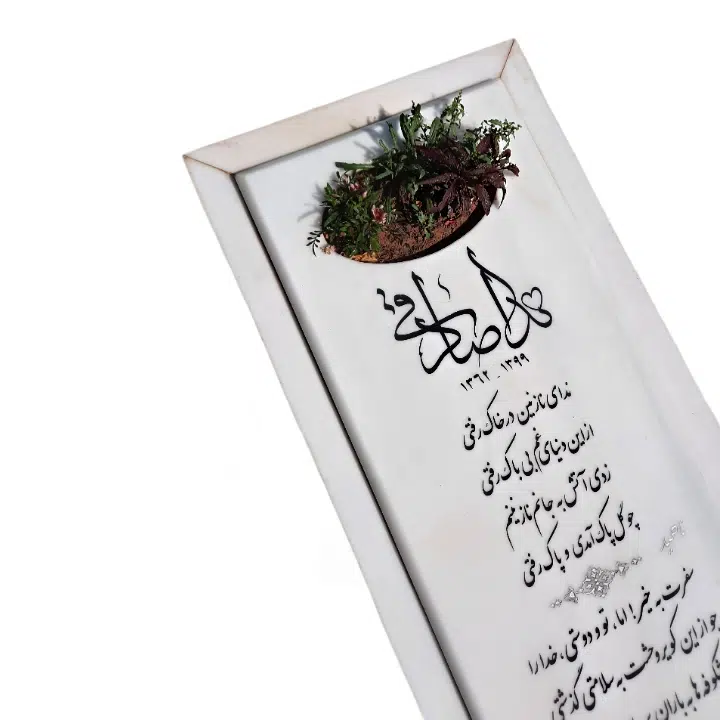 ندا صادقی
۱۳۶۲ - ۱۳۹۹
ندای نازنین در خاک رفتی
از این دنیای غم بی باک رفتی
زدی آتش به جانم نازنینم
چو گل پاک آمدی و پاک رفتی
سفرت به خیر! اما، تو و دوستی، خدا را
چو از این کویر وحشت به سلامتی گذشتی
شکوفه ها به باران